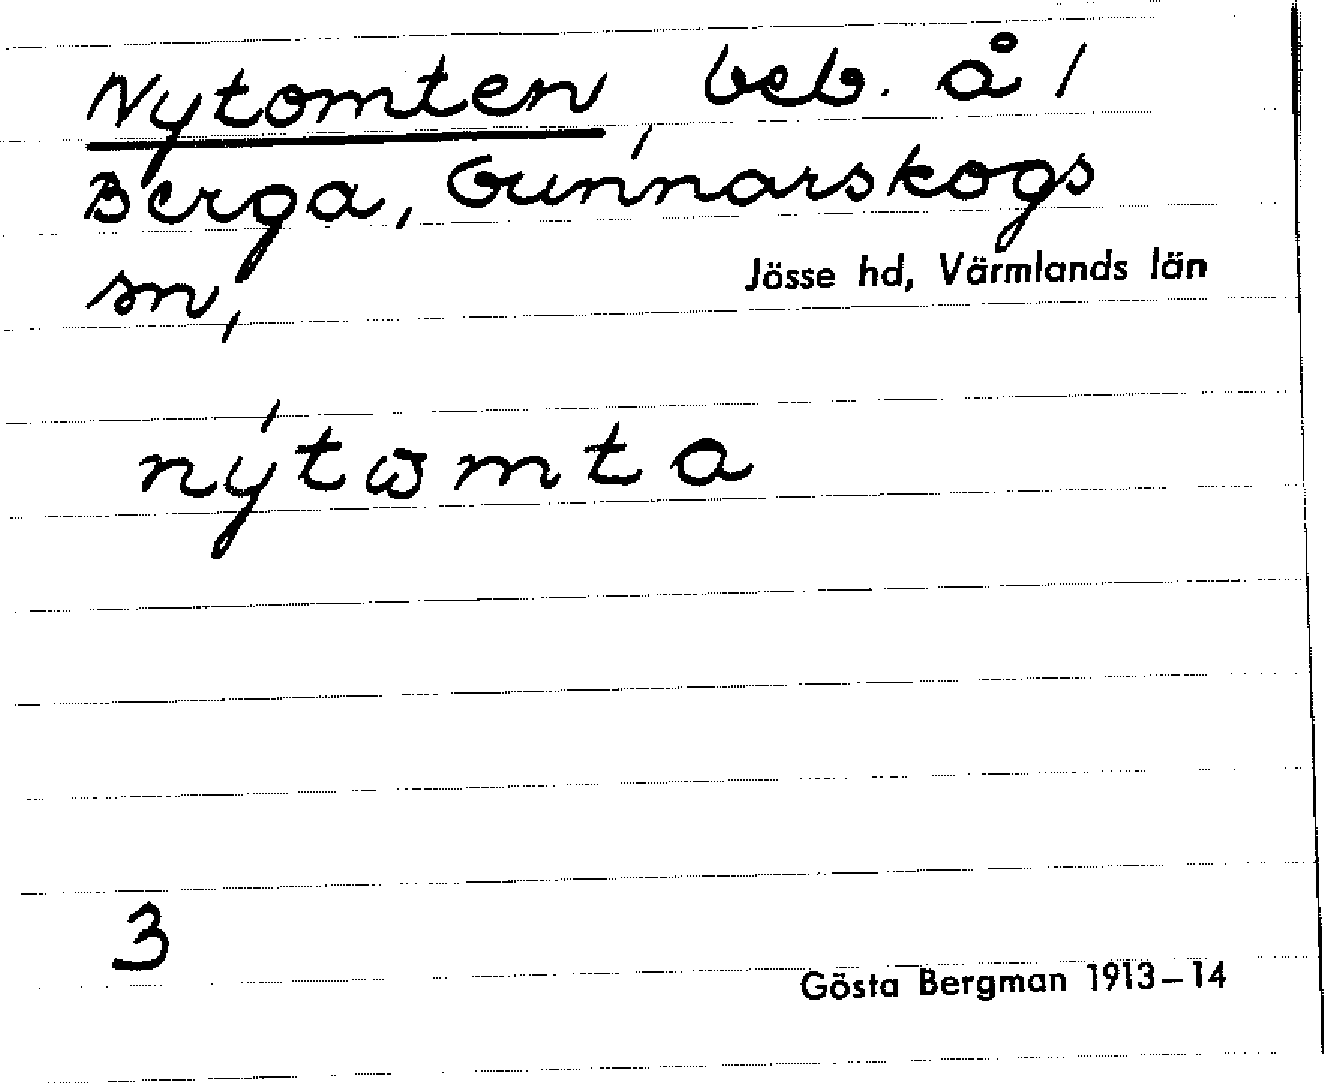 Nytomten, beb. å /
Berga, Gunnarskogs
sn,
Jösse hd, Värmlands län
ny´tωmta
3
Gösta Bergman 1913–14